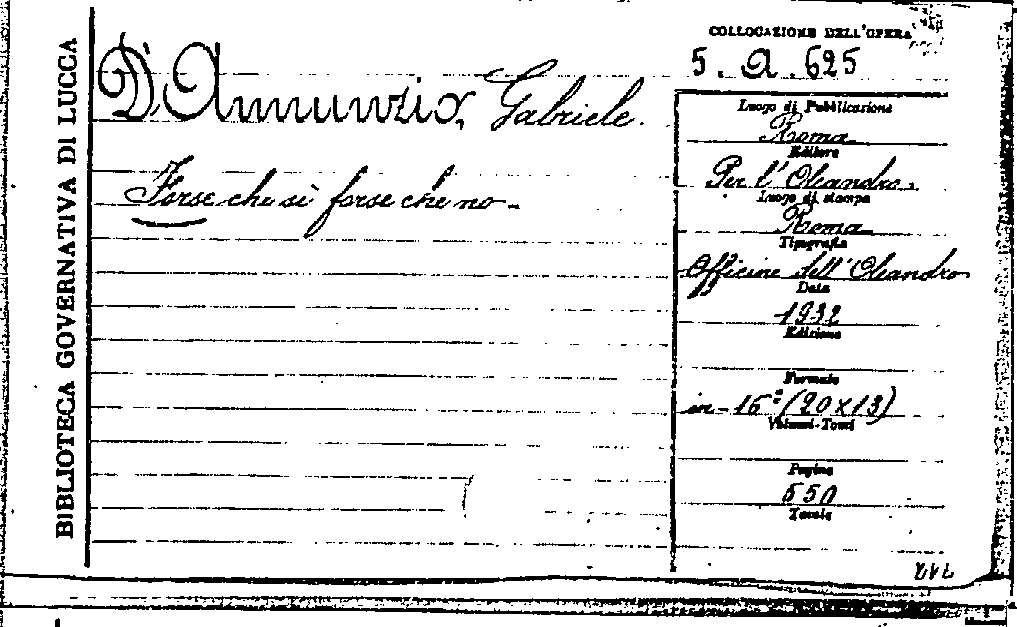 BIBLIOTECA GOVERNATIVA DI LUCCA
D'Annunzio, Gabriele.
Forse che sì forse che no -
COLLOCAZIONE DELL'OPERA
5. A. 625
Luogo di Pubblicazione
Roma
Editore
Per l'Oleandro.
Luogo di stampa
Roma
Tipografia
Officine dell'Oleandro
Data
1932
Edizione
Formato
in-16° (20x13)
Volumi-Tomi
Pagine
550
Tavole